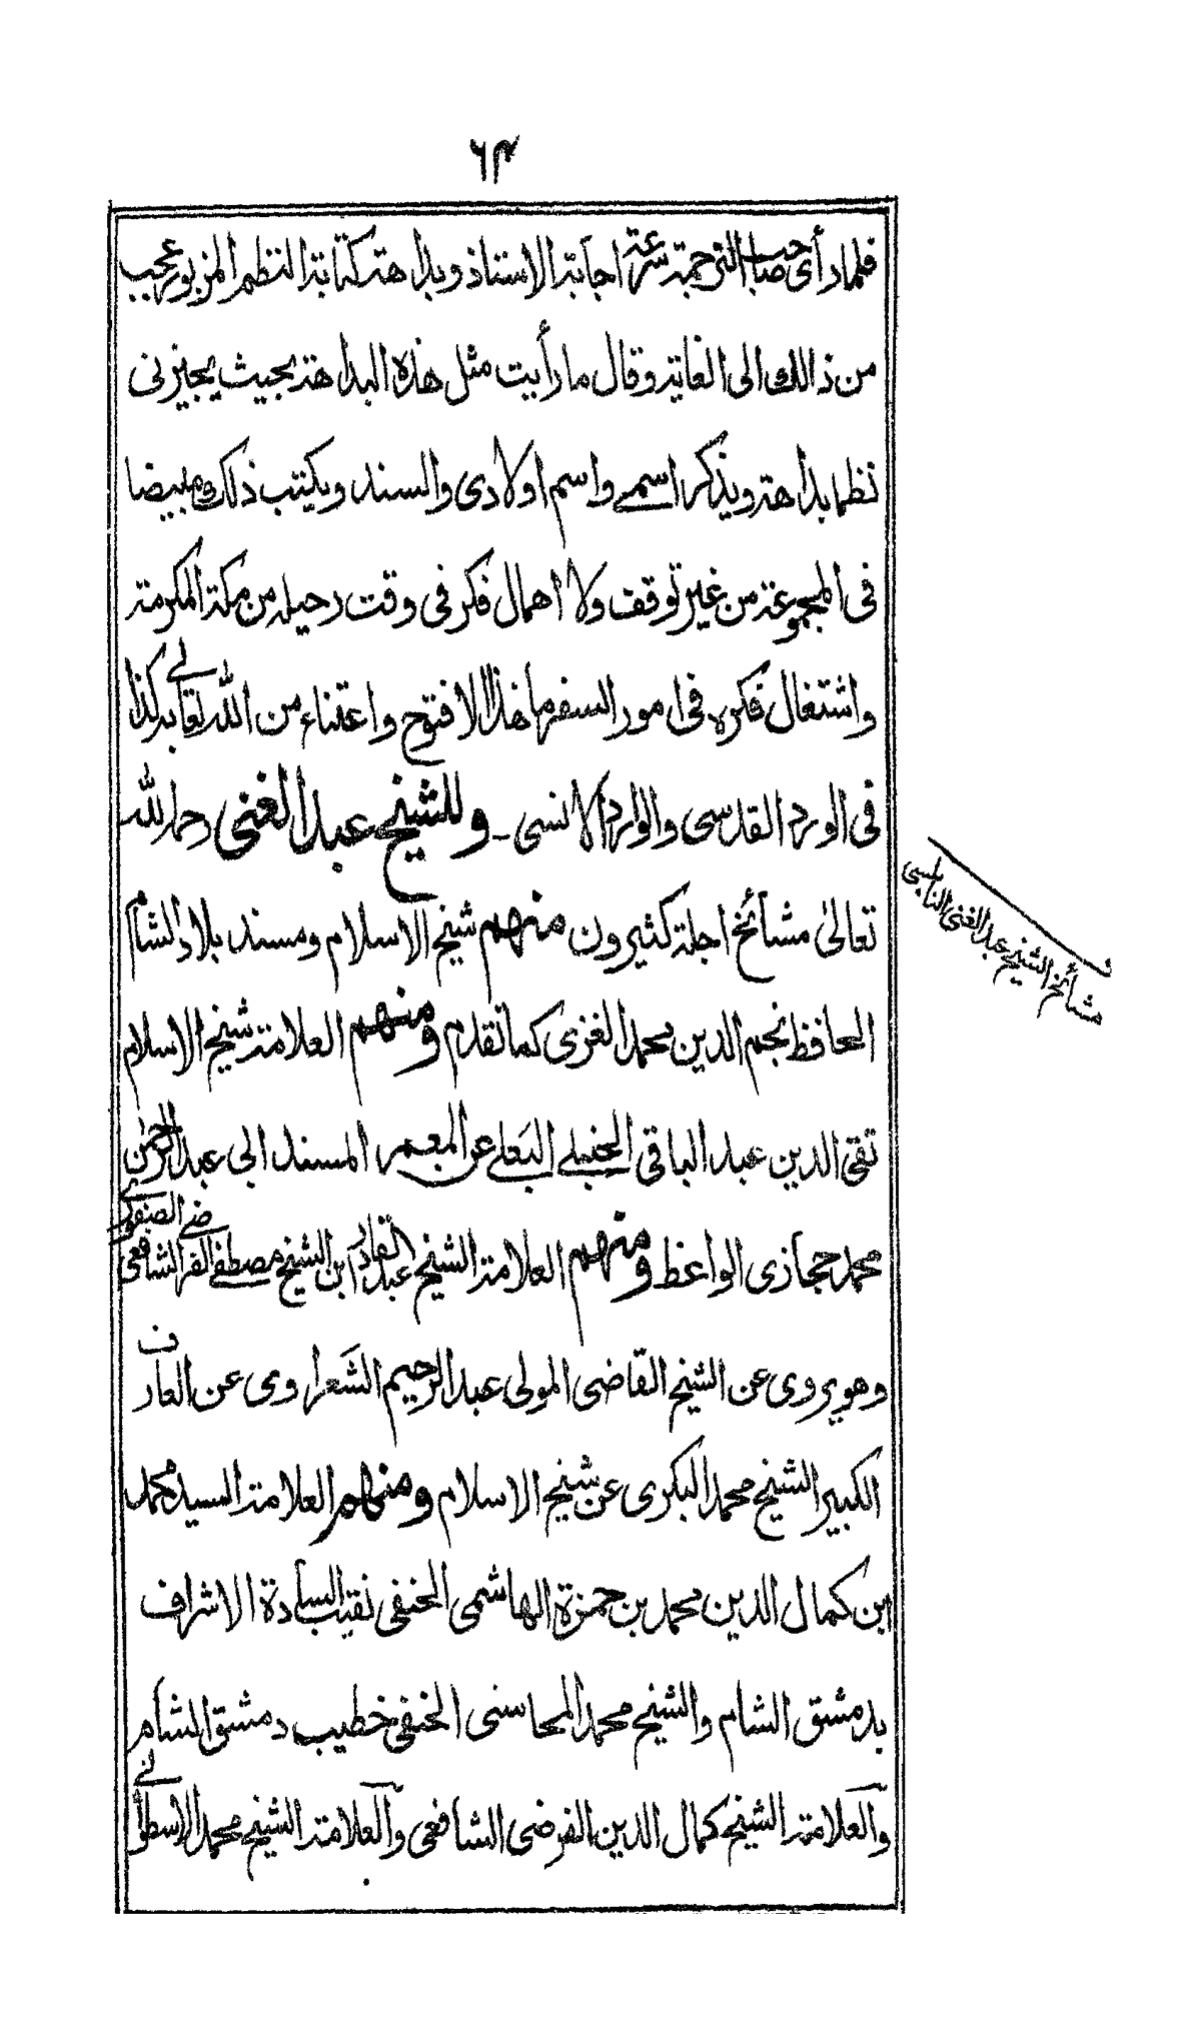 ٦٣
فلما رأى صاحب الترجمة سرعة اجابة الاستاذ وبداهة كتابة النظم المزبور عجب
من ذالك الى الغاية وقال ما رأيت مثل هذه البداهة بحيث يجيزنى
نظما بداهة ويذكر اسمى واسم اولادى والسند ويكتب ذلك مبيضا
فى المجموعة من غير توقف ولا اهمال فكر فى وقت رحيله من مكة المكرمة
واشتغال فكره فى امور السفر ما هذا الا فتوح واعتناء من الله تعالى به كذا
فى الورد القدسى والوارد الانسى ـ وللشيخ عبد الغنى رحمه الله
تعالىٰ مشآئخ اجلة كثيرون منهم شيخ الاسلام ومسند بلاد الشام
الحافظ نجم الدين محمد الغزى كما تقدم ومنهم العلامة شيخ الاسلام
تقى الدين عبد الباقى الحنبلى البَعلى عن المعمر المسند ابى عبد الرحمٰن
محمد حجازى الواعظ ومنهم العلامة الشيخ عبد القادر ابن الشيخ مصطفى الفرضى الصفورى الشافعى
وهو يروى عن الشيخ القاضى المولى عبد الرحيم الشَعراوى عن العارف
الكبير الشيخ محمد البكرى عن شيخ الاسلام ومنهم العلامة السيد محمد
ابن كمال الدين محمد بن حمزة الهاشمى الحنفى نقيب السادة الاشراف
بدمشق الشام والشيخ محمد المحاسنى الحنفى خطيب دمشق الشام
والعلامة الشيخ كمال الدين الفرضى الشافعى والعلامة الشيخ محمد الاسطوانى
مشآئخ الشيخ عبد الغنى النابلسى